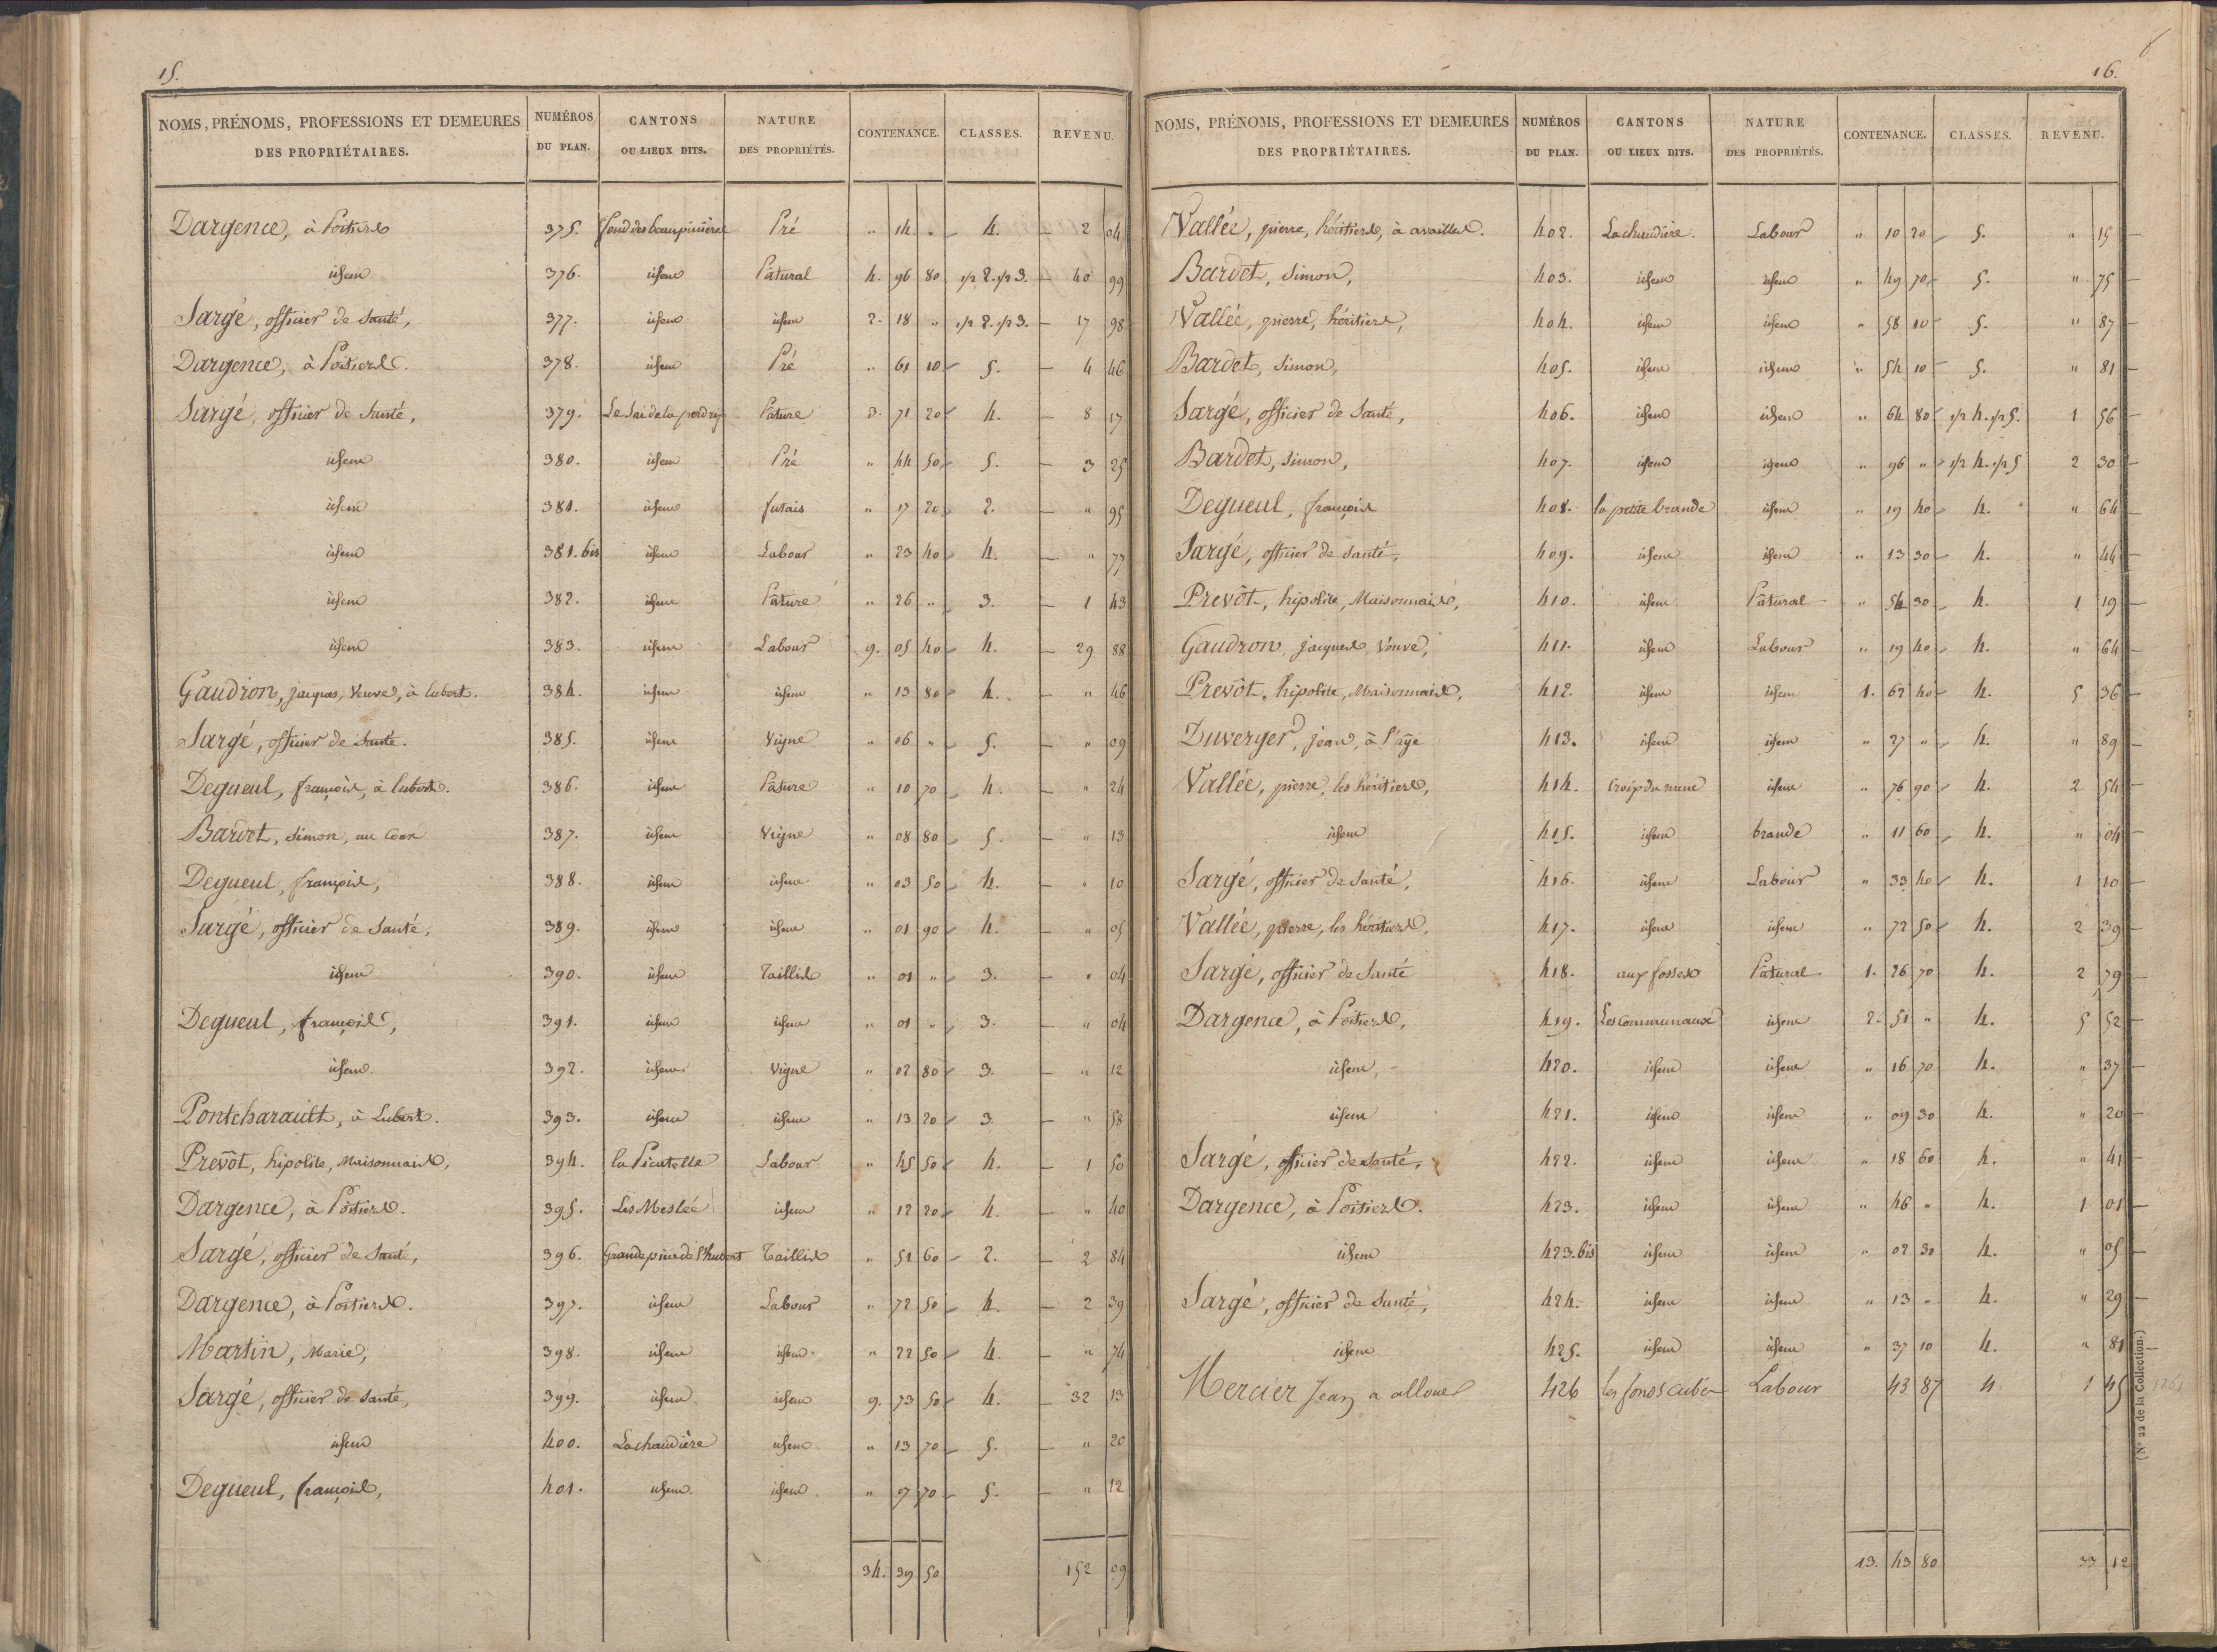 15.
NOMS, PRÉNOMS, PROFESSIONS ET DEMEURES DES PROPRIÉTAIRES. NUMÉROS DU PLAN. CANTONS OU LIEUX DITS. NATURE DES PROPRIÉTÉS. CONTENANCE. CLASSES. REVENU.
Dargence, à Poitiers 375. fond des beaupinières Pré " 14 " 4. 2 04
idem 376. idem Pâtural 4. 96 80 1/2 2. 1/2 3. 40 99
Sargé, officier de Santé, 377. idem idem 2. 18 " 1/2 2. 1/2 3. 17 98
Dargence, à Poitiers. 378. idem Pré " 61 10 5. 4 46
Sargé, officier de Santé, 379. Le Sai de la perdrix Pâture 3. 71 20 4. 8 17
idem 380. idem Pré " 44 50 5. 3 25
idem 381. idem futais " 17 20 2. " 95
idem 381. bis idem Labour " 23 40 4. " 77
idem 382. idem Pâture " 26 " 3. 1 43
idem 383. idem Labour 9. 05 40 4. 29 88
Gaudron, jacques, Veuve, à lubert. 384. idem idem " 13 80 4. " 46
Sargé, officier de Santé. 385. idem Vigne " 06 " 5. " 09
Degueul, françois, à lubert. 386. idem Pâture " 10 70 4. " 24
Bardet, Simon, au 387. idem Vigne " 08 80 5. " 13
Degueul, françois, 388. idem idem " 03 50 4. " 10
Sargé, officier de Santé, 389. idem idem " 01 90 4. " 05
idem 390. idem Taillis " 01 " 3. " 04
Degueul, françois, 391. idem idem " 01 " 3. " 04
idem 392. idem Vigne " 02 80 3. " 12
Pontcharault, à Lubert. 393. idem idem " 13 20 3 " 58
Prevôt, hipolite, Maisonnais, 394. la Picatelle Labour " 45 50 4. 1 50
Dargence, à Poitiers. 395. Les Meslée idem " 12 20 4. " 40
Sargé, officier de Santé, 396. Grande pièce de l'hubert Taillis " 51 60 2. 2 84
Dargence, à Poitiers. 397. idem Labour " 72 50 4. 2 39
Martin, Marie, 398. idem idem " 22 50 4. " 74
Sargé, officier de Santé, 399. idem idem 9. 73 50 4. 32 13
idem 400. Lachaudière idem " 13 70 5. " 20
Degueul, françois, 401. idem idem " 07 70 5. " 12
34. 39 50 152 09
16.
NOMS, PRÉNOMS, PROFESSIONS ET DEMEURES DES PROPRIÉTAIRES. NUMÉROS DU PLAN. CANTONS OU LIEUX DITS. NATURE DES PROPRIÉTÉS. CONTENANCE. CLASSES. REVENU.
Vallée, pierre, héritiers, à availles. 402. Lachaudière. Labour " 10 20 5. " 15
Bardet, Simon, 403. idem idem " 49 70 5. " 75
Vallée, pierre, héritiers, 404. idem idem " 58 10 5. " 87
Bardet, Simon, 405. idem idem " 54 10 5. " 81
Sargé, officier de Santé, 406. idem idem " 64 80 1/2 4. 1/2 5. 1 56
Bardet, Simon, 407. idem idem " 96 " 1/2 4. 1/2 5 2 30
Degueul, françois 408. la petite brande idem " 19 40 4. " 64
Sargé, officier de Santé, 409. idem idem " 13 30 4. " 44
Prevôt, hipolite, Maisonnais, 410. idem Pâtural " 54 30 4. 1 19
Gaudron, jacques, Veuve, 411. idem Labour " 19 40 4. " 64
Prevôt, hipolite, Maisonnais, 412. idem idem 1. 62 40 4. 5 36
Duverger, jean, à l'age 413. idem idem " 27 " 4. " 89
Vallée, pierre, les héritiers, 414. Croix du mene idem " 76 90 4. 2 54
idem 415. idem brande " 11 60 4. " 04
Sargé, officier de Santé, 416. idem Labour " 33 40 4. 1 10
Vallée, pierre, les héritiers, 417. idem idem " 72 50 4. 2 39
Sargé, officier de Santé 418. aux fosses Pâtural 1. 26 70 4. 2 79
Dargence, à Poitiers, 419. Les Communaux idem 2. 51 " 4. 5 52
idem, 420. idem idem " 16 70 4. " 37
idem 421. idem idem " 09 30 4. " 20
Sargé, officier de Santé, 422. idem idem " 18 60 4. " 41
Dargence, à Poitiers. 423. idem idem " 46 " 4. 1 01
idem 423. bis idem idem " 02 30 4. " 05
Sargé, officier de Santé, 424. idem idem " 13 " 4. " 29
idem 425. idem idem " 37 10 4. " 81
Mercier Jean a alloue 426 les fonds Labour 43 87 4 1 45
13. 43 80 33 12
(N° 22 de la Collection.)